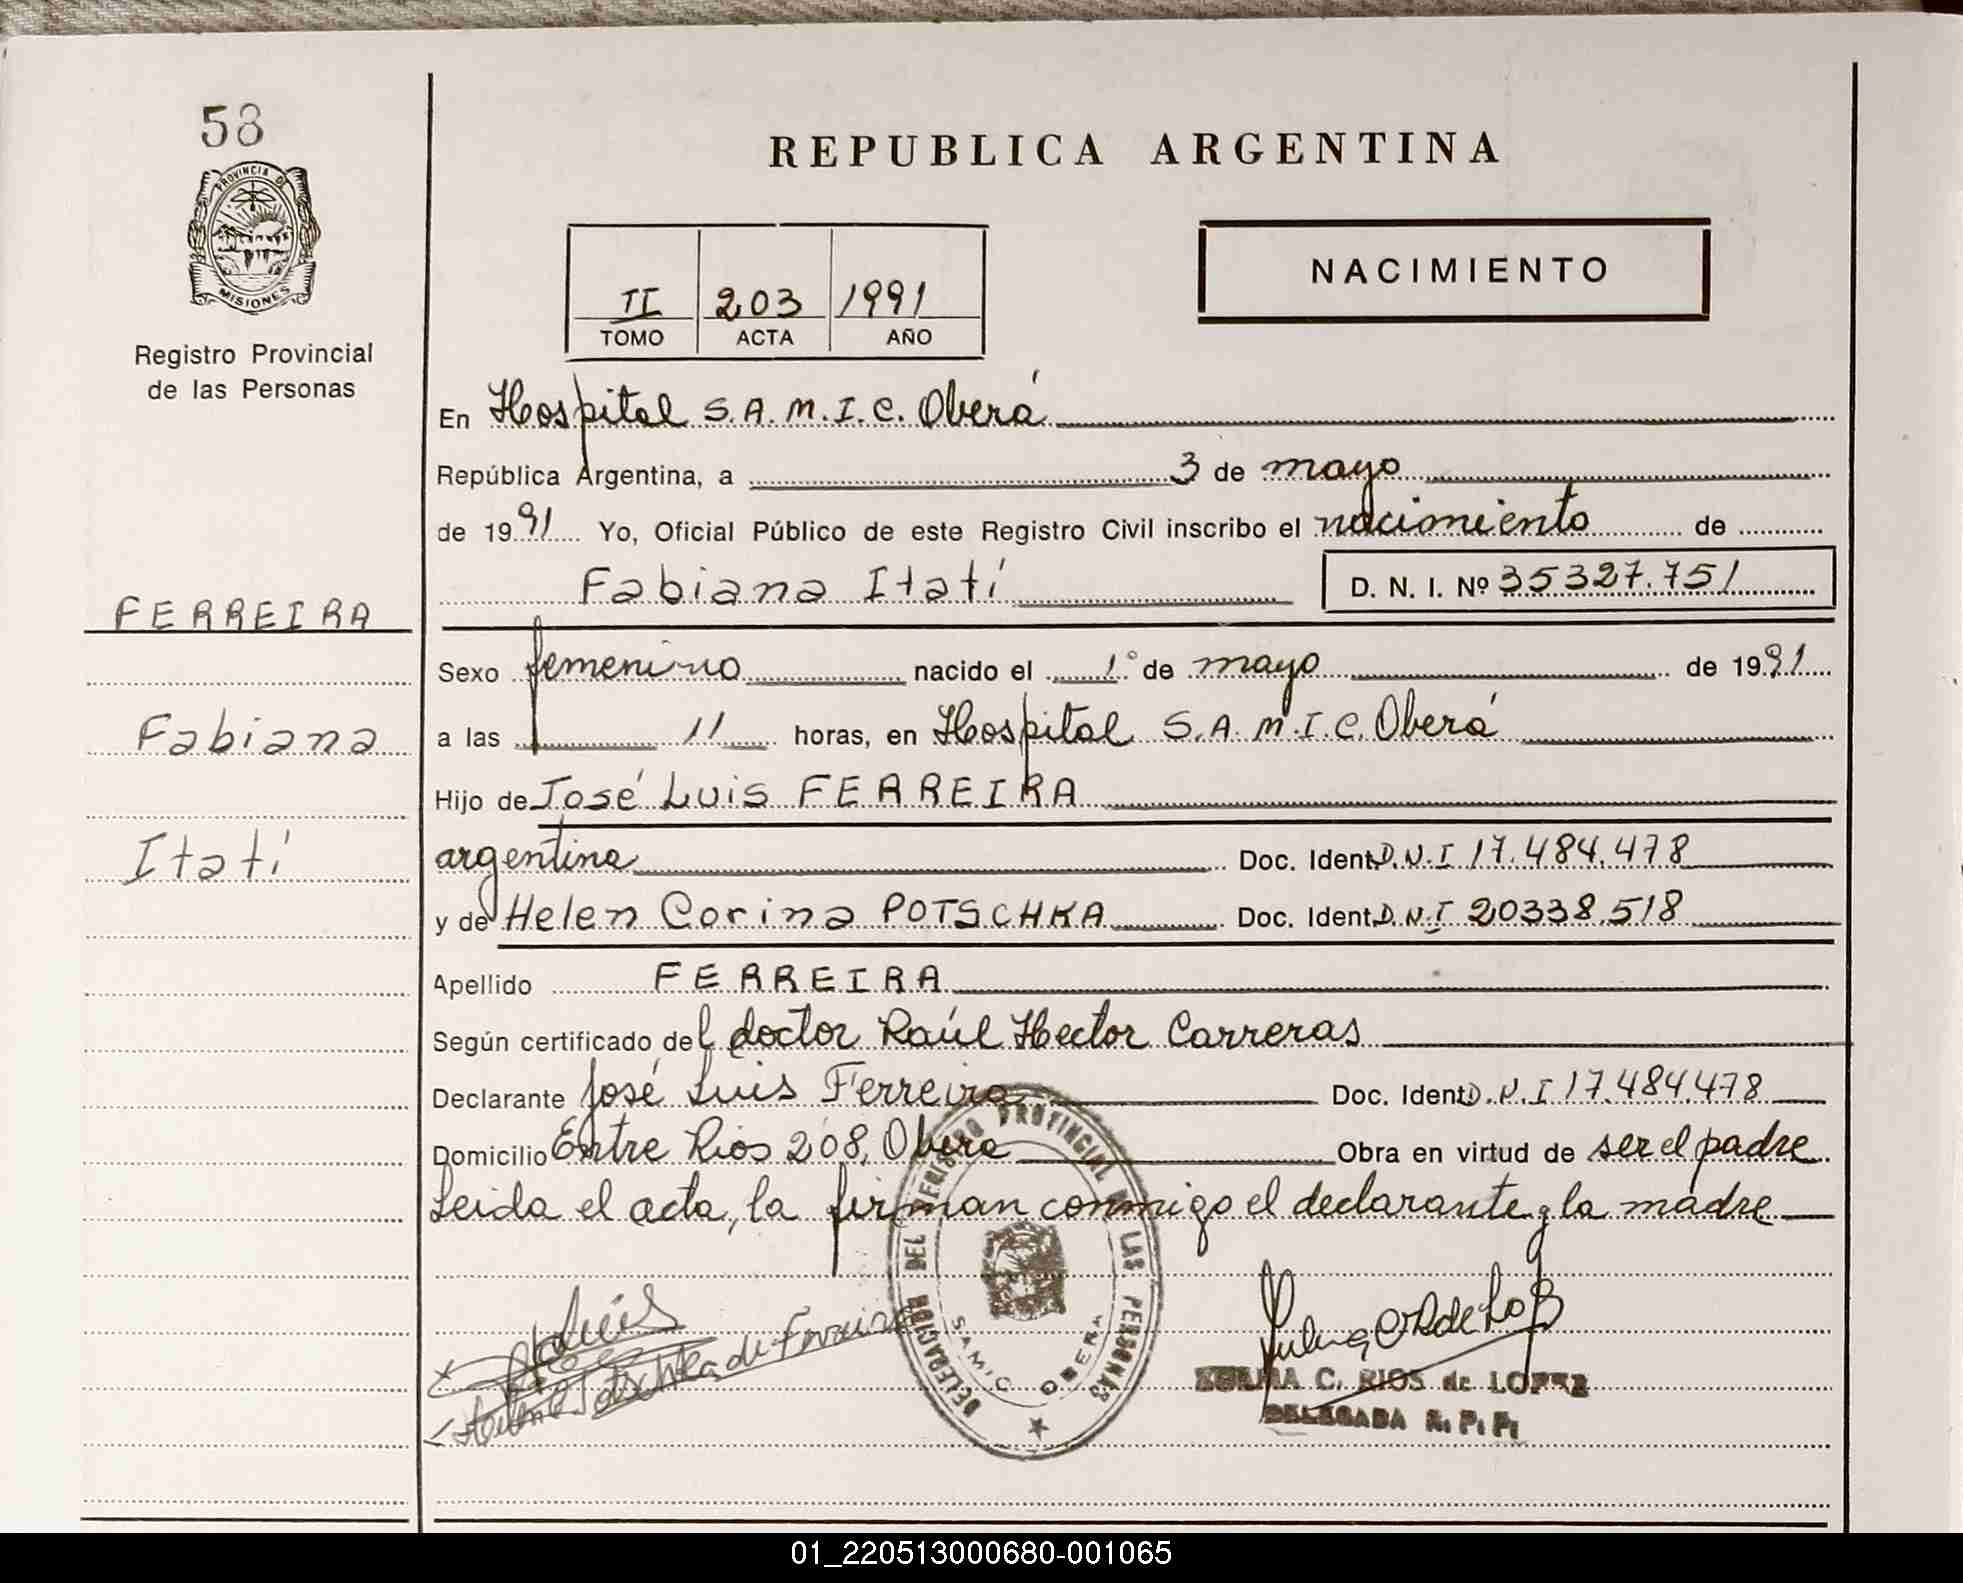 58
PROVINCIA DE
MISIONES
Registro Provincial
de las Personas
FERREIRA
Fabiana
Itatí
REPUBLICA ARGENTINA
II 203 1991
TOMO ACTA AÑO
NACIMIENTO
En Hospital S.A.M.I.C. Oberá
República Argentina, a 3 de mayo
de 1991 Yo, Oficial Público de este Registro Civil inscribo el nacimiento de
Fabiana Itatí D. N. I. Nº 35327.751
Sexo femenino nacido el 1º de mayo de 1991
a las 11 horas, en Hospital S.A.M.I.C. Oberá
Hijo de José Luis FERREIRA
argentina Doc. Ident. D.N.I 17.484.478
y de Helen Corina POTSCHKA Doc. Ident. D.N.I 20338.518
Apellido FERREIRA
Según certificado del doctor Raúl Hector Carreras
Declarante José Luis Ferreira Doc. Ident. D.N.I 17.484.478
Domicilio Entre Rios 208, Obera Obra en virtud de ser el padre
Leida el acta, la firman conmigo el declarante y la madre
DELEGACION DEL REGISTRO PROVINCIAL DE LAS PERSONAS
SAMIC OBERA
Helen C. Potschka de Ferreira
ZULMA C. RIOS de LOPEZ
DELEGADA R. P. P.
01_220513000680-001065